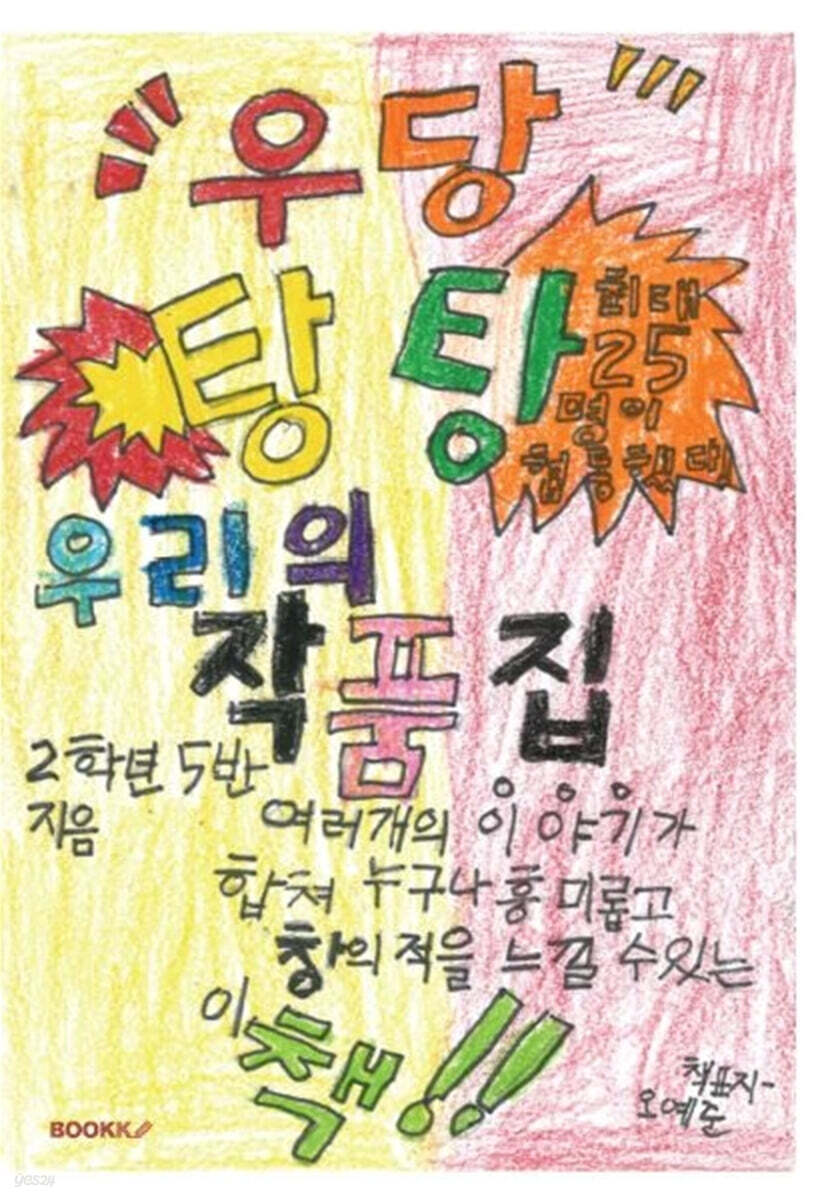 우당
탕탕
최대
25
명이
협동했대!
우리의
작품집
2학년 5반
지음
여러개의 이야기가
합쳐 누구나 흥미롭고
창의적을 느낄 수있는
이 책!!
책표지-
오예준
BOOKK
yes24